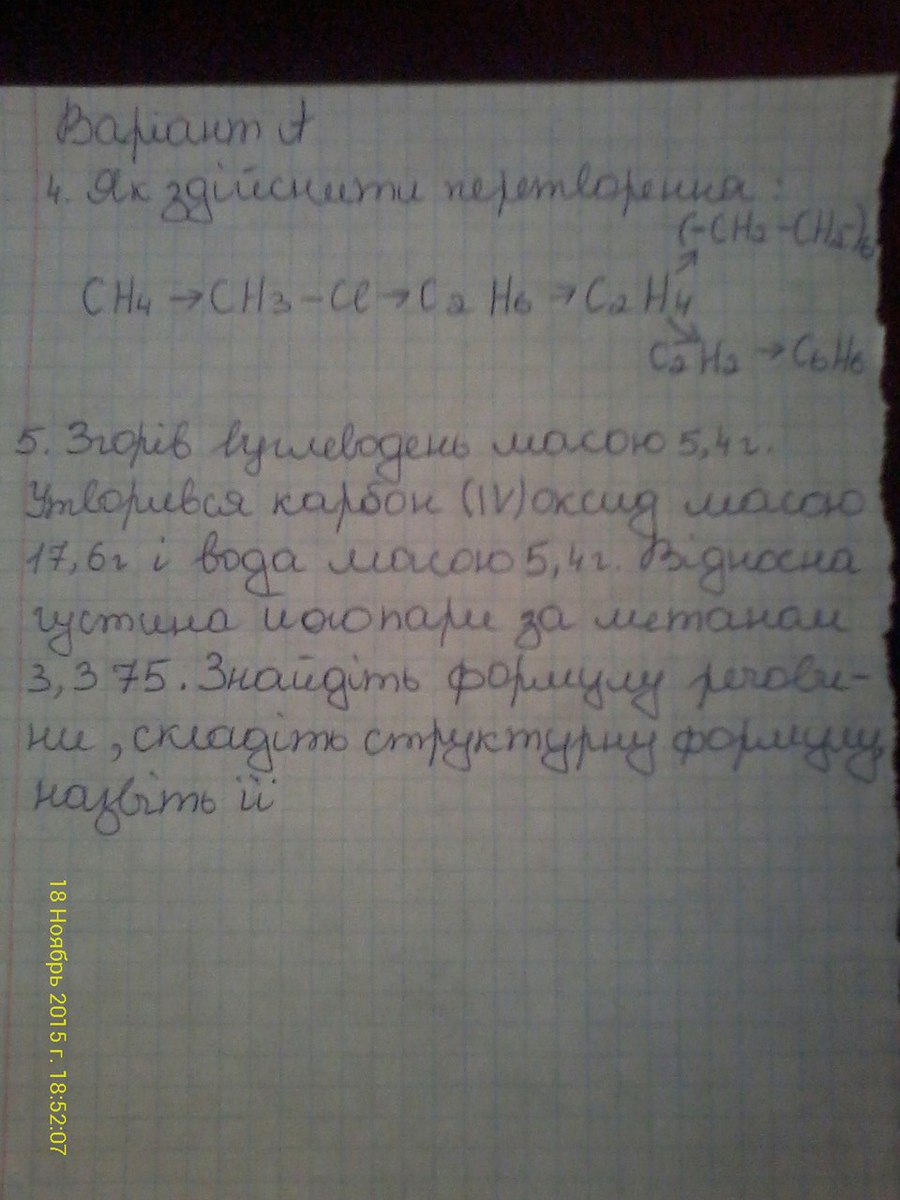 Варіант А
4. Як здійснити перетворення:
(-CH2-CH2-)
CH4 → CH3-Cl → C2H6 → C2H4
C2H2 → C6H6
5. Згорів вуглеводень масою 5,4г.
Утворився карбон (IV) оксид масою
17,6г і вода масою 5,4г. Відносна
густина його пари за метаном
3,375. Знайдіть формулу речови-
ни, складіть структурну формулу,
назвіть її
18 Ноябрь 2015 г. 18:52:07